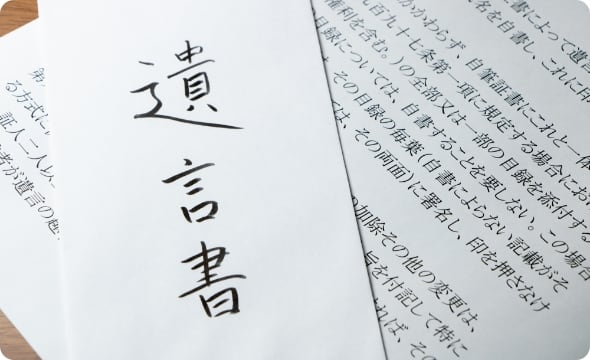 遺言書
書によって遺言
名を自書し、これに印
かかわらず、自筆証書にこれと一体
百九十七条第一項に規定する場合にお
権利を含む。）の全部又は一部の目録を添付する
目録については、自書することを要しない。この場合
、その目録の毎葉（自書によらない記載がそ
は、その両面）に署名し、印を押さなけ
加除その他の変更は、
旨を付記して特に
れば、そ
第
る方式に
証人二人以
者が遺言の趣